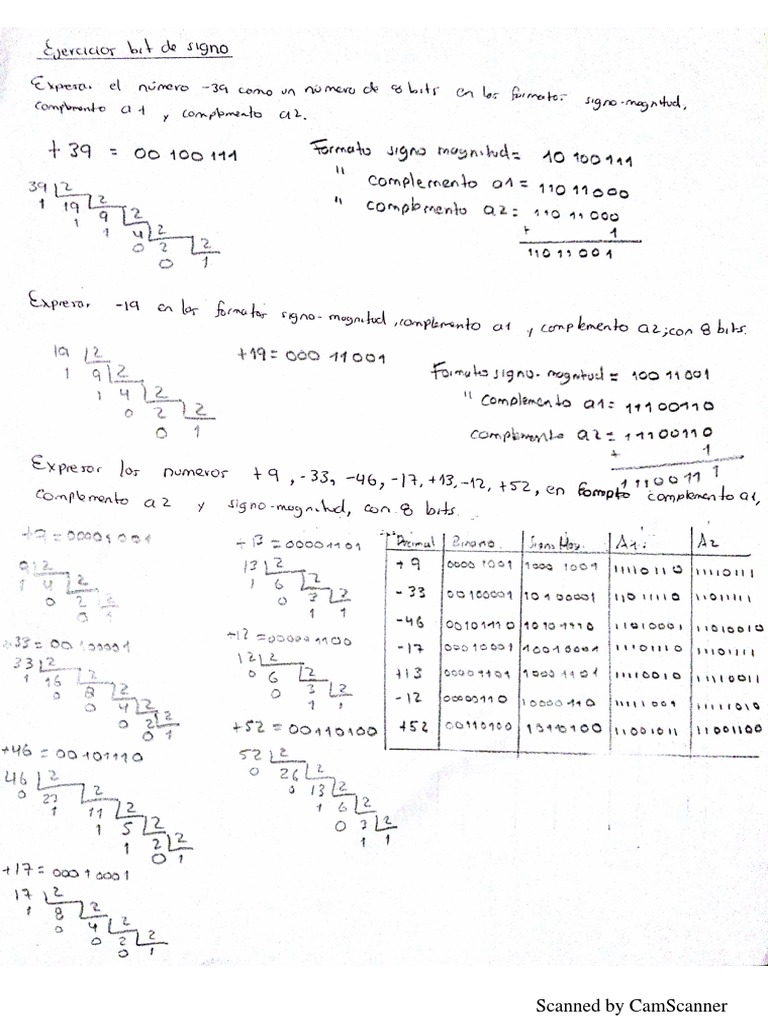 Ejercicios bit de signo
Expresa el número -39 como un número de 8 bits en los formatos signo-magnitud,
complemento a1 y complemento a2.
+ 39 = 00 100 111
Formato signo magnitud = 10 100111
" complemento a1 = 110 11000
" complemento a2 = 110 11 000
+ 1
110 11 001
39 2
1 19 2
1 9 2
1 4 2
0 2 2
0 1
Expresar -19 en los formatos signo-magnitud, complemento a1 y complemento a2, con 8 bits.
19 2
1 9 2
1 4 2
0 2 2
0 1
+19 = 000 11001
Formato signo-magnitud = 100 11001
" complemento a1 = 111 00110
complemento a2 = 111 00110
+ 1
1110011 1
Expresar los numeros +9, -33, -46, -17, +13, -12, +52, en formato complemento a1,
complemento a2 y signo-magnitud, con 8 bits.
+9 = 00001001
9 2
1 4 2
0 2 2
0 1
+33 = 00100001
33 2
1 16 2
0 8 2
0 4 2
0 2 2
0 1
+46 = 00101110
46 2
0 23 2
1 11 2
1 5 2
1 2 2
0 1
+17 = 00010001
17 2
1 8 2
0 4 2
0 2 2
0 1
+13 = 00001101
13 2
1 6 2
0 3 2
1 1
+12 = 00001100
12 2
0 6 2
0 3 2
1 1
+52 = 00110100
52 2
0 26 2
0 13 2
1 6 2
0 3 2
1 1
Decimal Binario Signo Mag. A1 A2
+9 0000 1001 1000 1001 11110110 11110111
-33 00100001 10100001 11011110 11011111
-46 00101110 10101110 11010001 11010010
-17 00010001 10010001 11101110 11101111
+13 00001101 10001101 11110010 11110011
-12 00000110 10000110 11111001 11111010
+52 00110100 10110100 11001011 11001100
Scanned by CamScanner